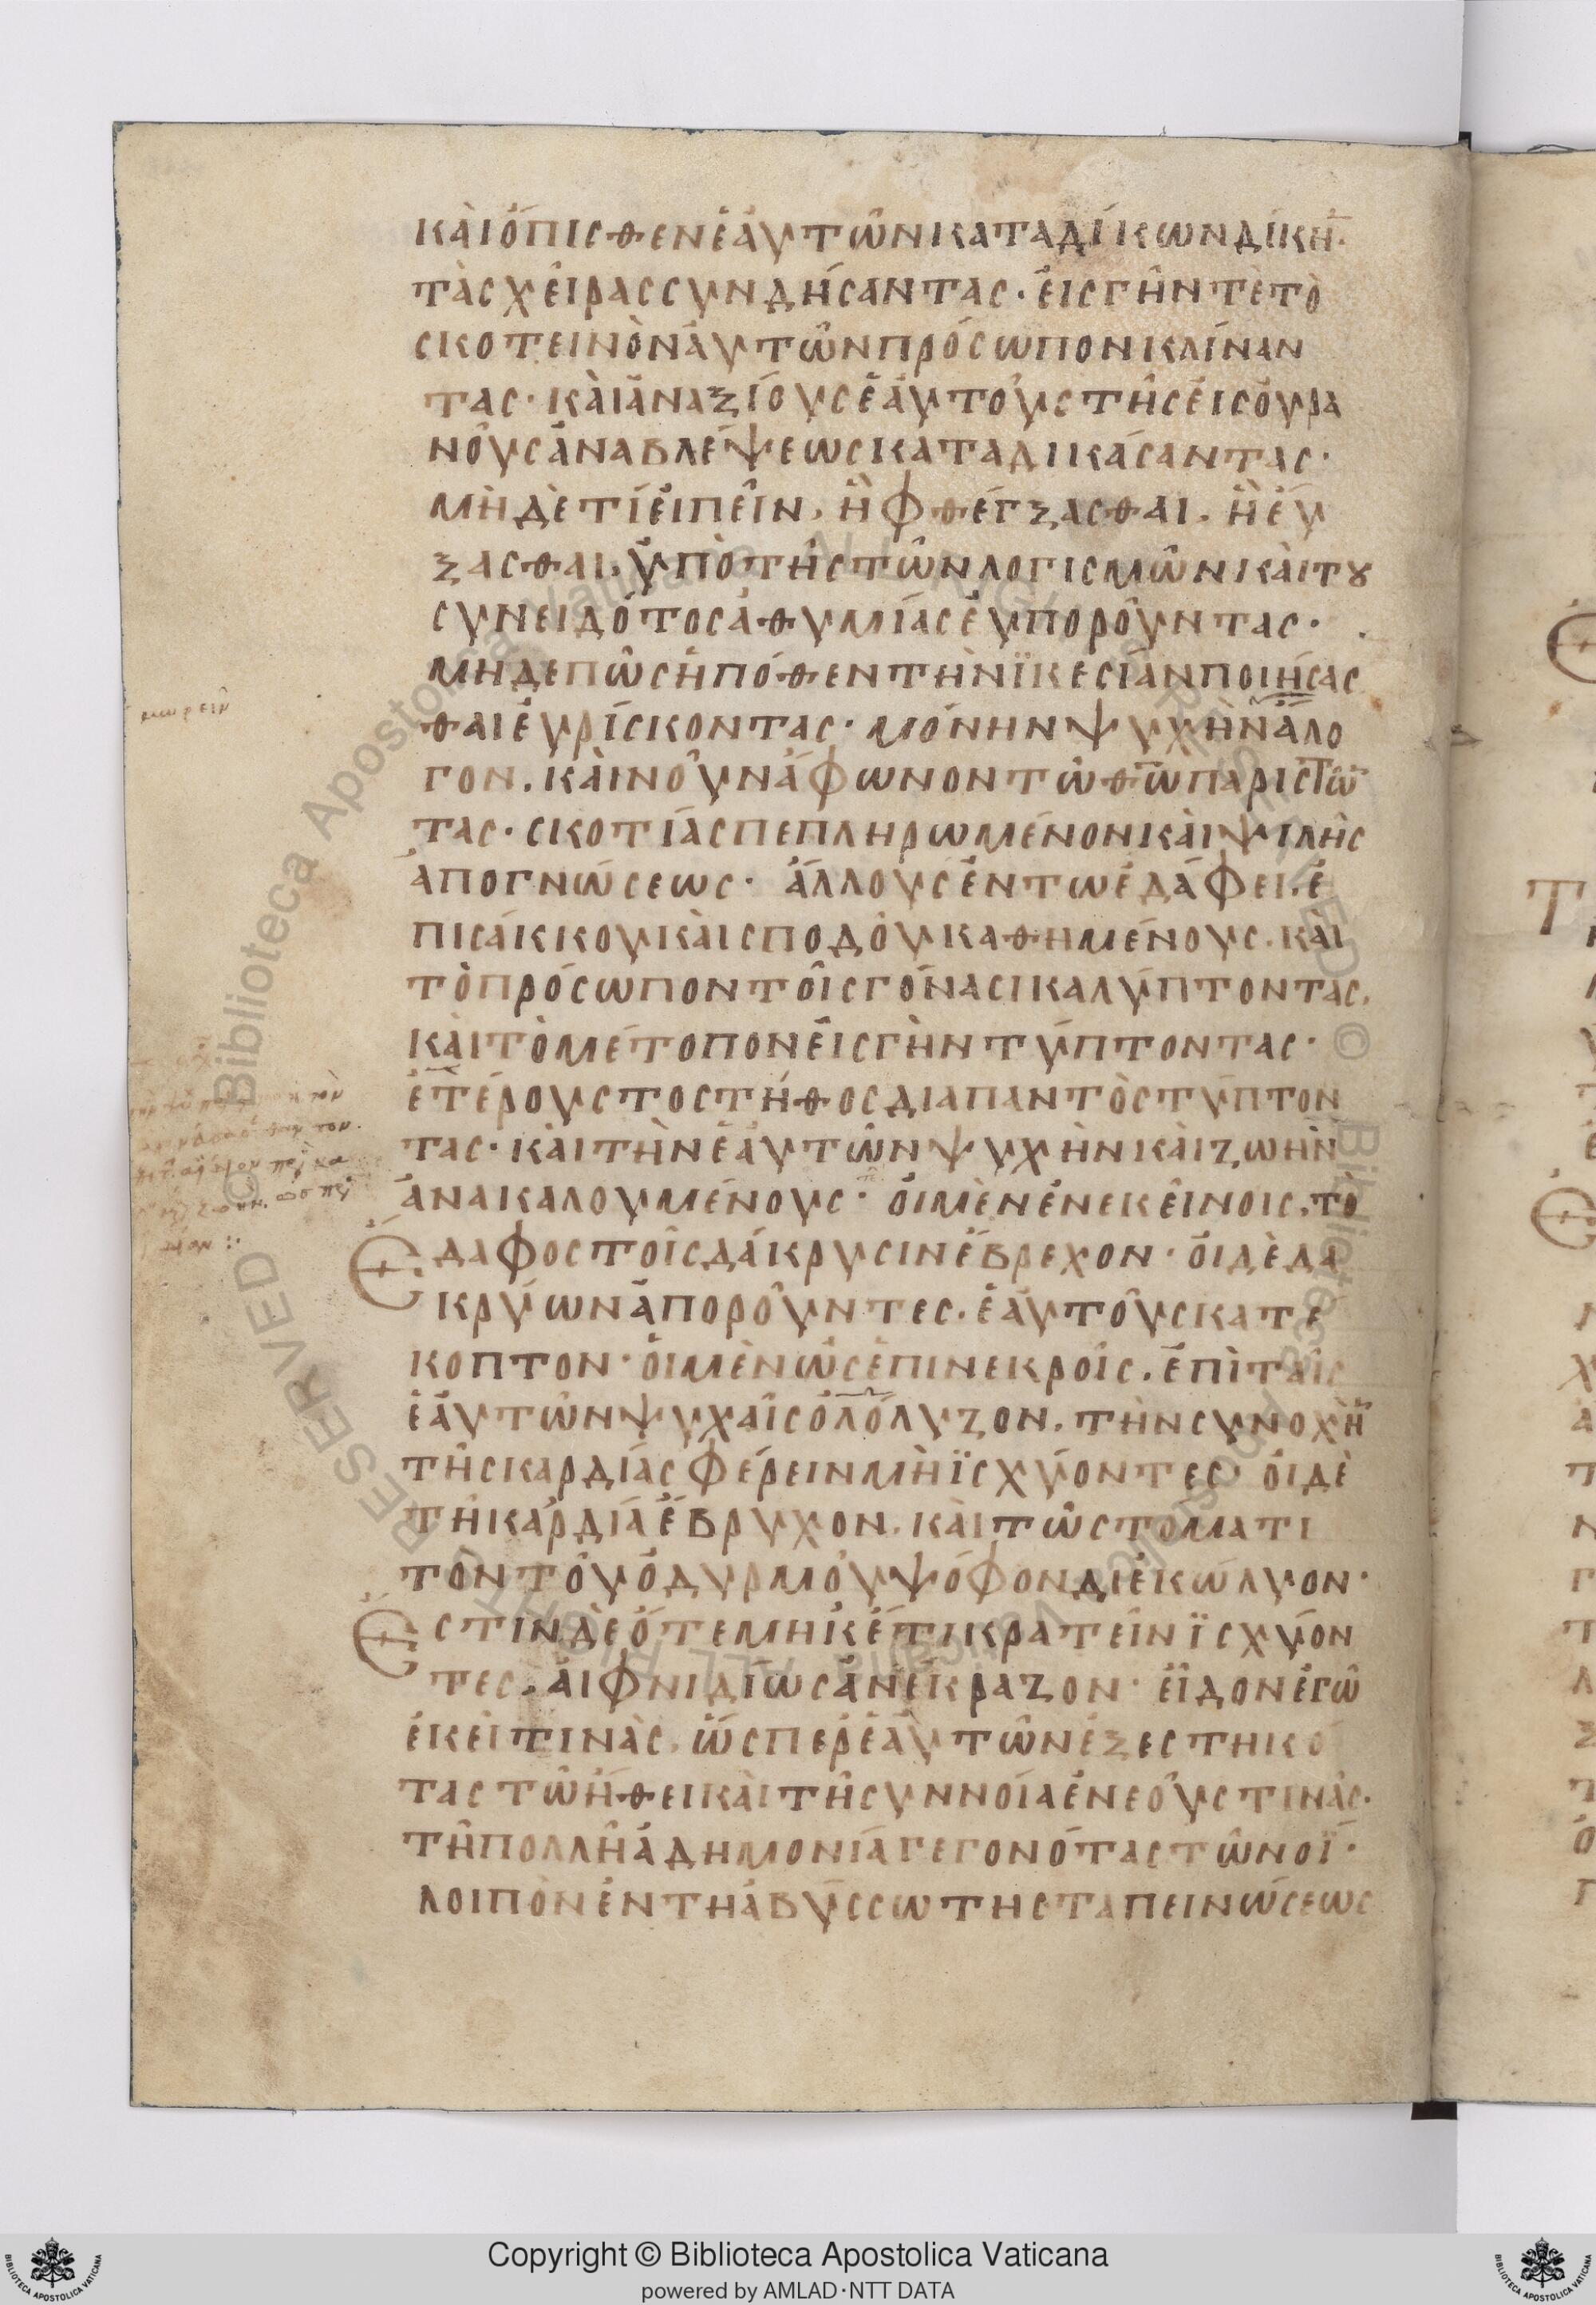 ΚΑῚ ὌΠΙΣΘΕΝ ἙΑΥΤΩ͂Ν ΚΑΤΑΔΊΚΩΝ ΔΊΚΗΝ·
ΤᾺΣ ΧΕΙ͂ΡΑΣ ΣΥΝΔΉΣΑΝΤΑΣ· ἘΙΣ ΓΗ͂Ν ΤῈ ΤῸ
ΣΚΟΤΕΙΝῸΝ ἈΥΤΩ͂Ν ΠΡΌΣΩΠΟΝ ΚΛΊΝΑΝ
ΤΑΣ· ΚΑῚ ἈΝΑΞΊΟΥΣ ἙΑΥΤΟῪΣ ΤΗ͂Σ ἘΙΣ ὈΥΡΑ
ΝΟῪΣ ἈΝΑΒΛΈΨΕΩΣ ΚΑΤΑΔΙΚΆΣΑΝΤΑΣ·
ΜῊΔῈ ΤΊ ἘΙΠΕΙ͂Ν. Ἢ ΦΘΈΓΞΑΣΘΑΙ. Ἢ ἘΥ
ΞΑΣΘΑΙ. ὙΠῸ ΤΗ͂Σ ΤΩ͂Ν ΛΟΓΙΣΜΩ͂Ν ΚΑῚ ΤȢ
ΣΥΝΕΙΔΌΤΟΣ ἈΘΥΜΊΑΣ ἘΥΠΟΡΟΥ͂ΝΤΑΣ·
ΜΗΔΕ ΠΩ͂Σ Ἢ ΠΌΘΕΝ ΤῊΝ ΪΚΕΣΊΑΝ ΠΟΙΉΣΑΣ
ΘΑΙ ἙΥΡΊΣΚΟΝΤΑΣ· ΜΌΝΗΝ ΨΥΧῊΝ ἌΛΟ
ΓΟΝ. ΚΑῚ ΝΟΥ͂Ν ἌΦΩΝΟΝ ΤΩ͂ ΘΩ͂ ΠΑΡΙΣΤΩ͂
ΤΑΣ· ΣΚΟΤΊΑΣ ΠΕΠΛΗΡΩΜΈΝΟΝ ΚΑῚ ΨΙΛΗ͂Σ
ἈΠΟΓΝΏΣΕΩΣ· ἌΛΛΟΥΣ ἘΝ ΤΩ ἘΔΆΦΕΙ. Ἐ
ΠΙ ΣΆΚΚΟΥ ΚΑῚ ΣΠΟΔΟΥ͂ ΚΑΘΗΜΈΝΟΥΣ. ΚΑῚ
ΤῸ ΠΡΌΣΩΠΟΝ ΤΟΙ͂Σ ΓΌΝΑΣΙ ΚΑΛΎΠΤΟΝΤΑΣ.
ΚΑῚ ΤῸ ΜΈΤΟΠΟΝ ἘΙΣ ΓῊΝ ΤΎΠΤΟΝΤΑΣ·
ἙΤΈΡΟΥΣ ΤΟ ΣΤΉΘΟΣ ΔΙΑΠΑΝΤῸΣ ΤΎΠΤΟΝ
ΤΑΣ· ΚΑῚ ΤῊΝ ἙΑΥΤΩ͂Ν ΨΥΧῊΝ ΚΑῚ ΖΩῊΝ
ἈΝΑΚΑΛΟΥΜΈΝΟΥΣ· ὉΙ ΜῈΝ ἘΝ ἘΚΕΊΝΟΙΣ. ΤῸ
ἜΔΑΦΟΣ ΤΟΙ͂Σ ΔΆΚΡΥΣΙΝ ἜΒΡΕΧΟΝ· ὉΙ ΔῈ ΔΑ
ΚΡΎΩΝ ἈΠΟΡΟΥ͂ΝΤΕΣ. ἙΑΥΤΟῪΣ ΚΑΤΕ
ΚΟΠΤΟΝ· ὉΙ ΜῈΝ ὩΣ ἘΠΙ ΝΕΚΡΟΙ͂Σ. ἘΠῚ ΤΑΙ͂Σ
ἙΑΥΤΩ͂Ν ΨΥΧΑΙ͂Σ ὈΛΌΛΥΖΟΝ. ΤῊΝ ΣΥΝΟΧῊΝ
ΤΗ͂Σ ΚΑΡΔΊΑΣ ΦΈΡΕΙΝ ΜῊ ΪΣΧΎΟΝΤΕΣ· ὉΙ ΔῈ
ΤΗ͂ ΚΑΡΔΊΑ ἜΒΡΥΧΟΝ. ΚΑῚ ΤΩ͂ ΣΤΟΜΑΤΙ
ΤῸΝ ΤΟΥ͂ ὈΔΥΡΜΟΥ͂ ΨΌΦΟΝ ΔΙΕΚΏΛΥΟΝ·
ἜΣΤΙΝ ΔῈ ὍΤΕ ΜΗΚΈΤΙ ΚΡΑΤΕΙ͂Ν ΪΣΧΎΟΝ
ΤΕΣ. ἈΙΦΝΙΔΊΩΣ ἈΝΈΚΡΑΖΟΝ· ΕἾΔΟΝ ἘΓΩ͂
ἘΚΕΙ͂ ΤΙΝᾺΣ. ὭΣΠΕΡ ἙΑΥΤΩ͂Ν ἘΞΕΣΤΗΚΌ
ΤΑΣ ΤΩ͂ ἬΘΕΙ ΚΑῚ ΤΗ͂ ΣΥΝΝΟΊΑ ἘΝΕΟῪΣ ΤΙΝᾺΣ·
ΤΗ͂ ΠΟΛΛΗ͂ ἈΔΗΜΟΝΊΑ ΓΕΓΟΝΌΤΑΣ ΤΩ͂ ΝΟΪ·
ΛΟΙΠῸΝ ἘΝ ΤΗ ἈΒΎΣΣΩ ΤΗΣ ΤΑΠΕΙΝΏΣΕΩΣ
Copyright © Biblioteca Apostolica Vaticana
powered by AMLAD·NTT DATA